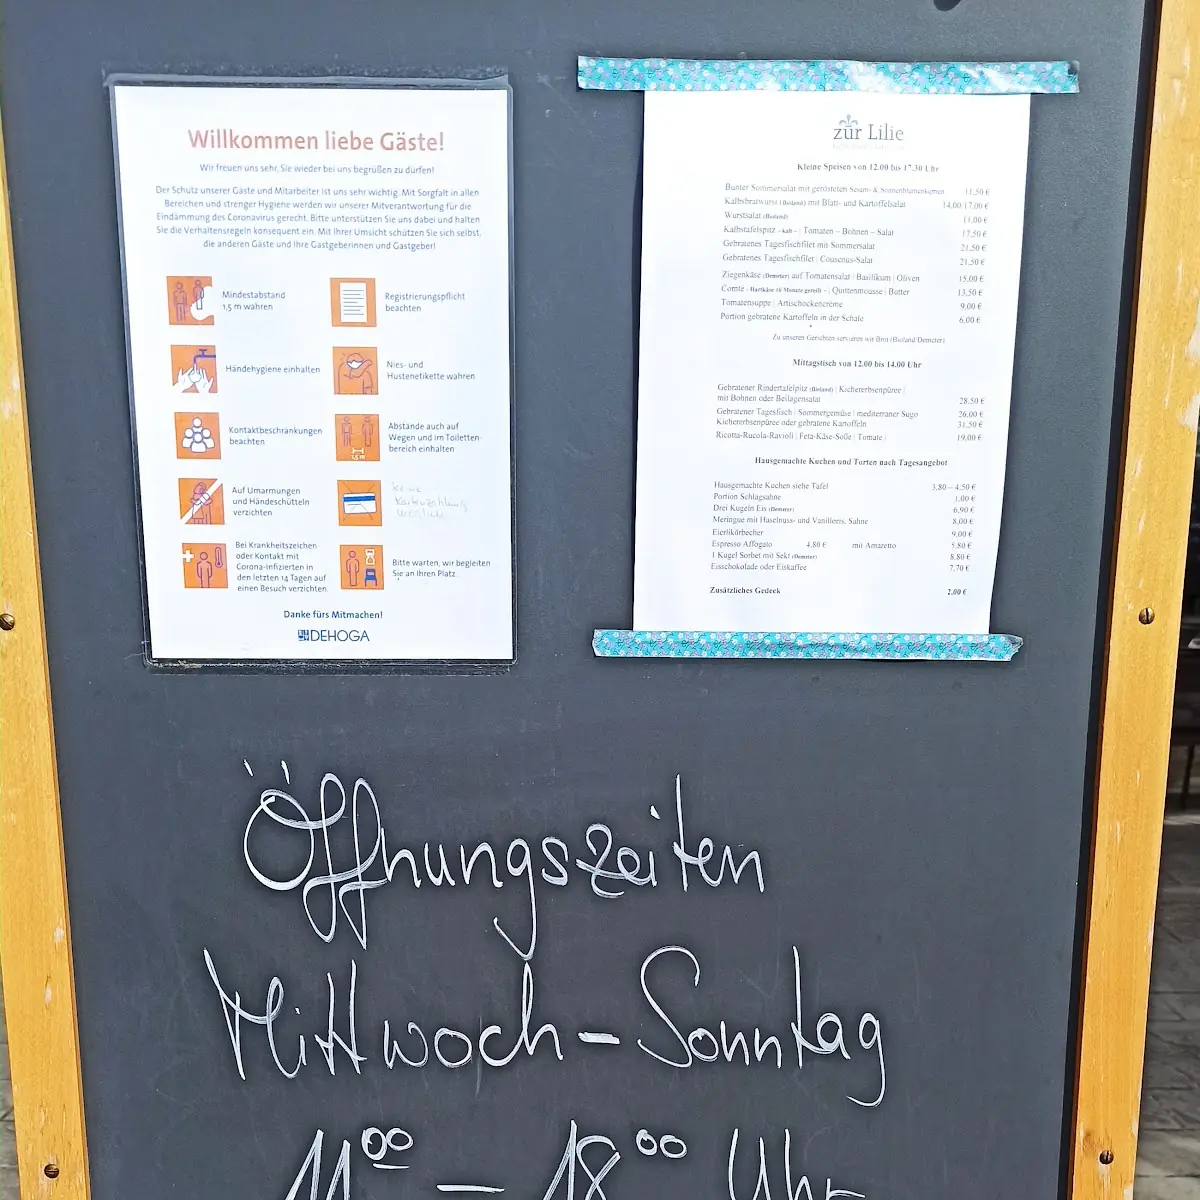 Willkommen liebe Gäste!
Wir freuen uns sehr, Sie wieder bei uns begrüßen zu dürfen!
Der Schutz unserer Gäste und Mitarbeiter ist uns sehr wichtig. Mit Sorgfalt in allen
Bereichen und strenger Hygiene werden wir unserer Mitverantwortung für die
Eindämmung des Coronavirus gerecht. Bitte unterstützen Sie uns dabei und halten
Sie die Verhaltensregeln konsequent ein. Mit Ihrer Umsicht schützen Sie sich selbst,
die anderen Gäste und Ihre Gastgeberinnen und Gastgeber!
Mindestabstand
1,5 m wahren
Registrierungspflicht
beachten
Händehygiene einhalten
Nies- und
Hustenetikette wahren
Kontaktbeschränkungen
beachten
1,5 m
Abstände auch auf
Wegen und im Toiletten-
bereich einhalten
Auf Umarmungen
und Händeschütteln
verzichten
keine
Kartenzahlung
möglich
Bei Krankheitszeichen
oder Kontakt mit
Corona-Infizierten in
den letzten 14 Tagen auf
einen Besuch verzichten.
Bitte warten, wir begleiten
Sie an Ihren Platz.
Danke fürs Mitmachen!
DEHOGA
zur Lilie
Kleine Speisen von 12.00 bis 17.30 Uhr
Bunter Sommersalat mit gerösteten Sesam- & Sonnenblumenkernen 11,50 €
Kalbsbratwurst (Bioland) mit Blatt- und Kartoffelsalat 14,00/17,00 €
Wurstsalat (Bioland) 11,00 €
Kalbstafelspitz - kalt - | Tomaten – Bohnen – Salat 17,50 €
Gebratenes Tagesfischfilet mit Sommersalat 21,50 €
Gebratenes Tagesfischfilet | Couscous-Salat 21,50 €
Ziegenkäse (Demeter) auf Tomatensalat | Basilikum | Oliven 15,00 €
Comté - Hartkäse 16 Monate gereift - | Quittenmousse | Butter 13,50 €
Tomatensuppe | Artischockencrème 9,00 €
Portion gebratene Kartoffeln in der Schale 6,00 €
Zu unseren Gerichten servieren wir Brot (Bioland/Demeter)
Mittagstisch von 12.00 bis 14.00 Uhr
Gebratener Rindertafelpitz (Bioland) | Kichererbsenpüree |
mit Bohnen oder Beilagensalat 28,50 €
Gebratener Tagesfisch | Sommergemüse | mediterraner Sugo 26,00 €
Kichererbsenpüree oder gebratene Kartoffeln 31,50 €
Ricotta-Rucola-Ravioli | Feta-Käse-Soße | Tomate | 19,00 €
Hausgemachte Kuchen und Torten nach Tagesangebot
Hausgemachte Kuchen siehe Tafel 3,80 – 4,50 €
Portion Schlagsahne 1,00 €
Drei Kugeln Eis (Demeter) 6,90 €
Meringue mit Haselnuss- und Vanilleeis, Sahne 8,00 €
Eierlikörbecher 9,00 €
Espresso Affogato 4,80 € mit Amaretto 5,80 €
1 Kugel Sorbet mit Sekt (Demeter) 8,80 €
Eisschokolade oder Eiskaffee 7,70 €
Zusätzliches Gedeck 2,00 €
Öffnungszeiten
Mittwoch – Sonntag
11 00 – 18 00 Uhr